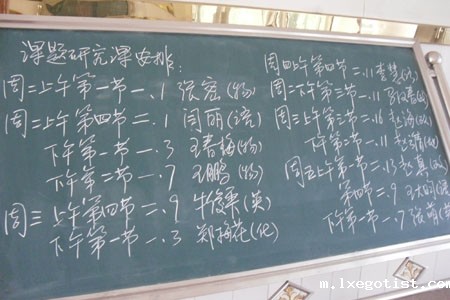 课题研究课安排:
周二上午第一节一.1 张宏(物)
周二上午第四节二.1 闫丽(语)
下午第一节一.3 王春梅(物)
下午第二节一.7 王鹏(物)
周三上午第四节二.9 牛俊秉(英)
下午第一节一.3 郑梅花(化)
周四上午第四节二.11 李慧
周二下午第三节一.11
周三上午第二节二.16
下午第二节一.11
周五上午第 节二.13 赵真
第四节二.9
下午第一节一.7 张萌
m.lxegotist.com